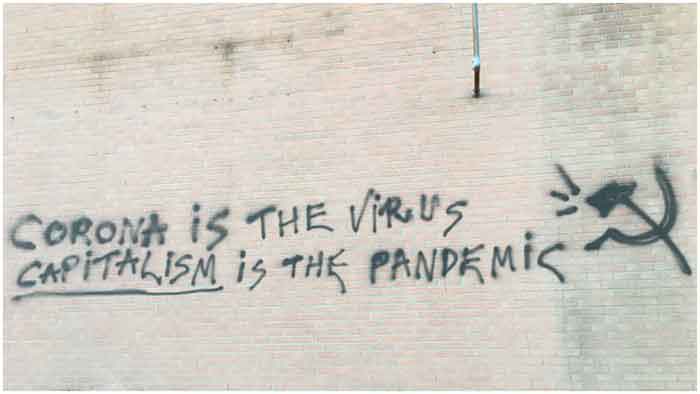 CORONA iS THE ViRUS
CAPiTALiSM iS THE PANDEMiC